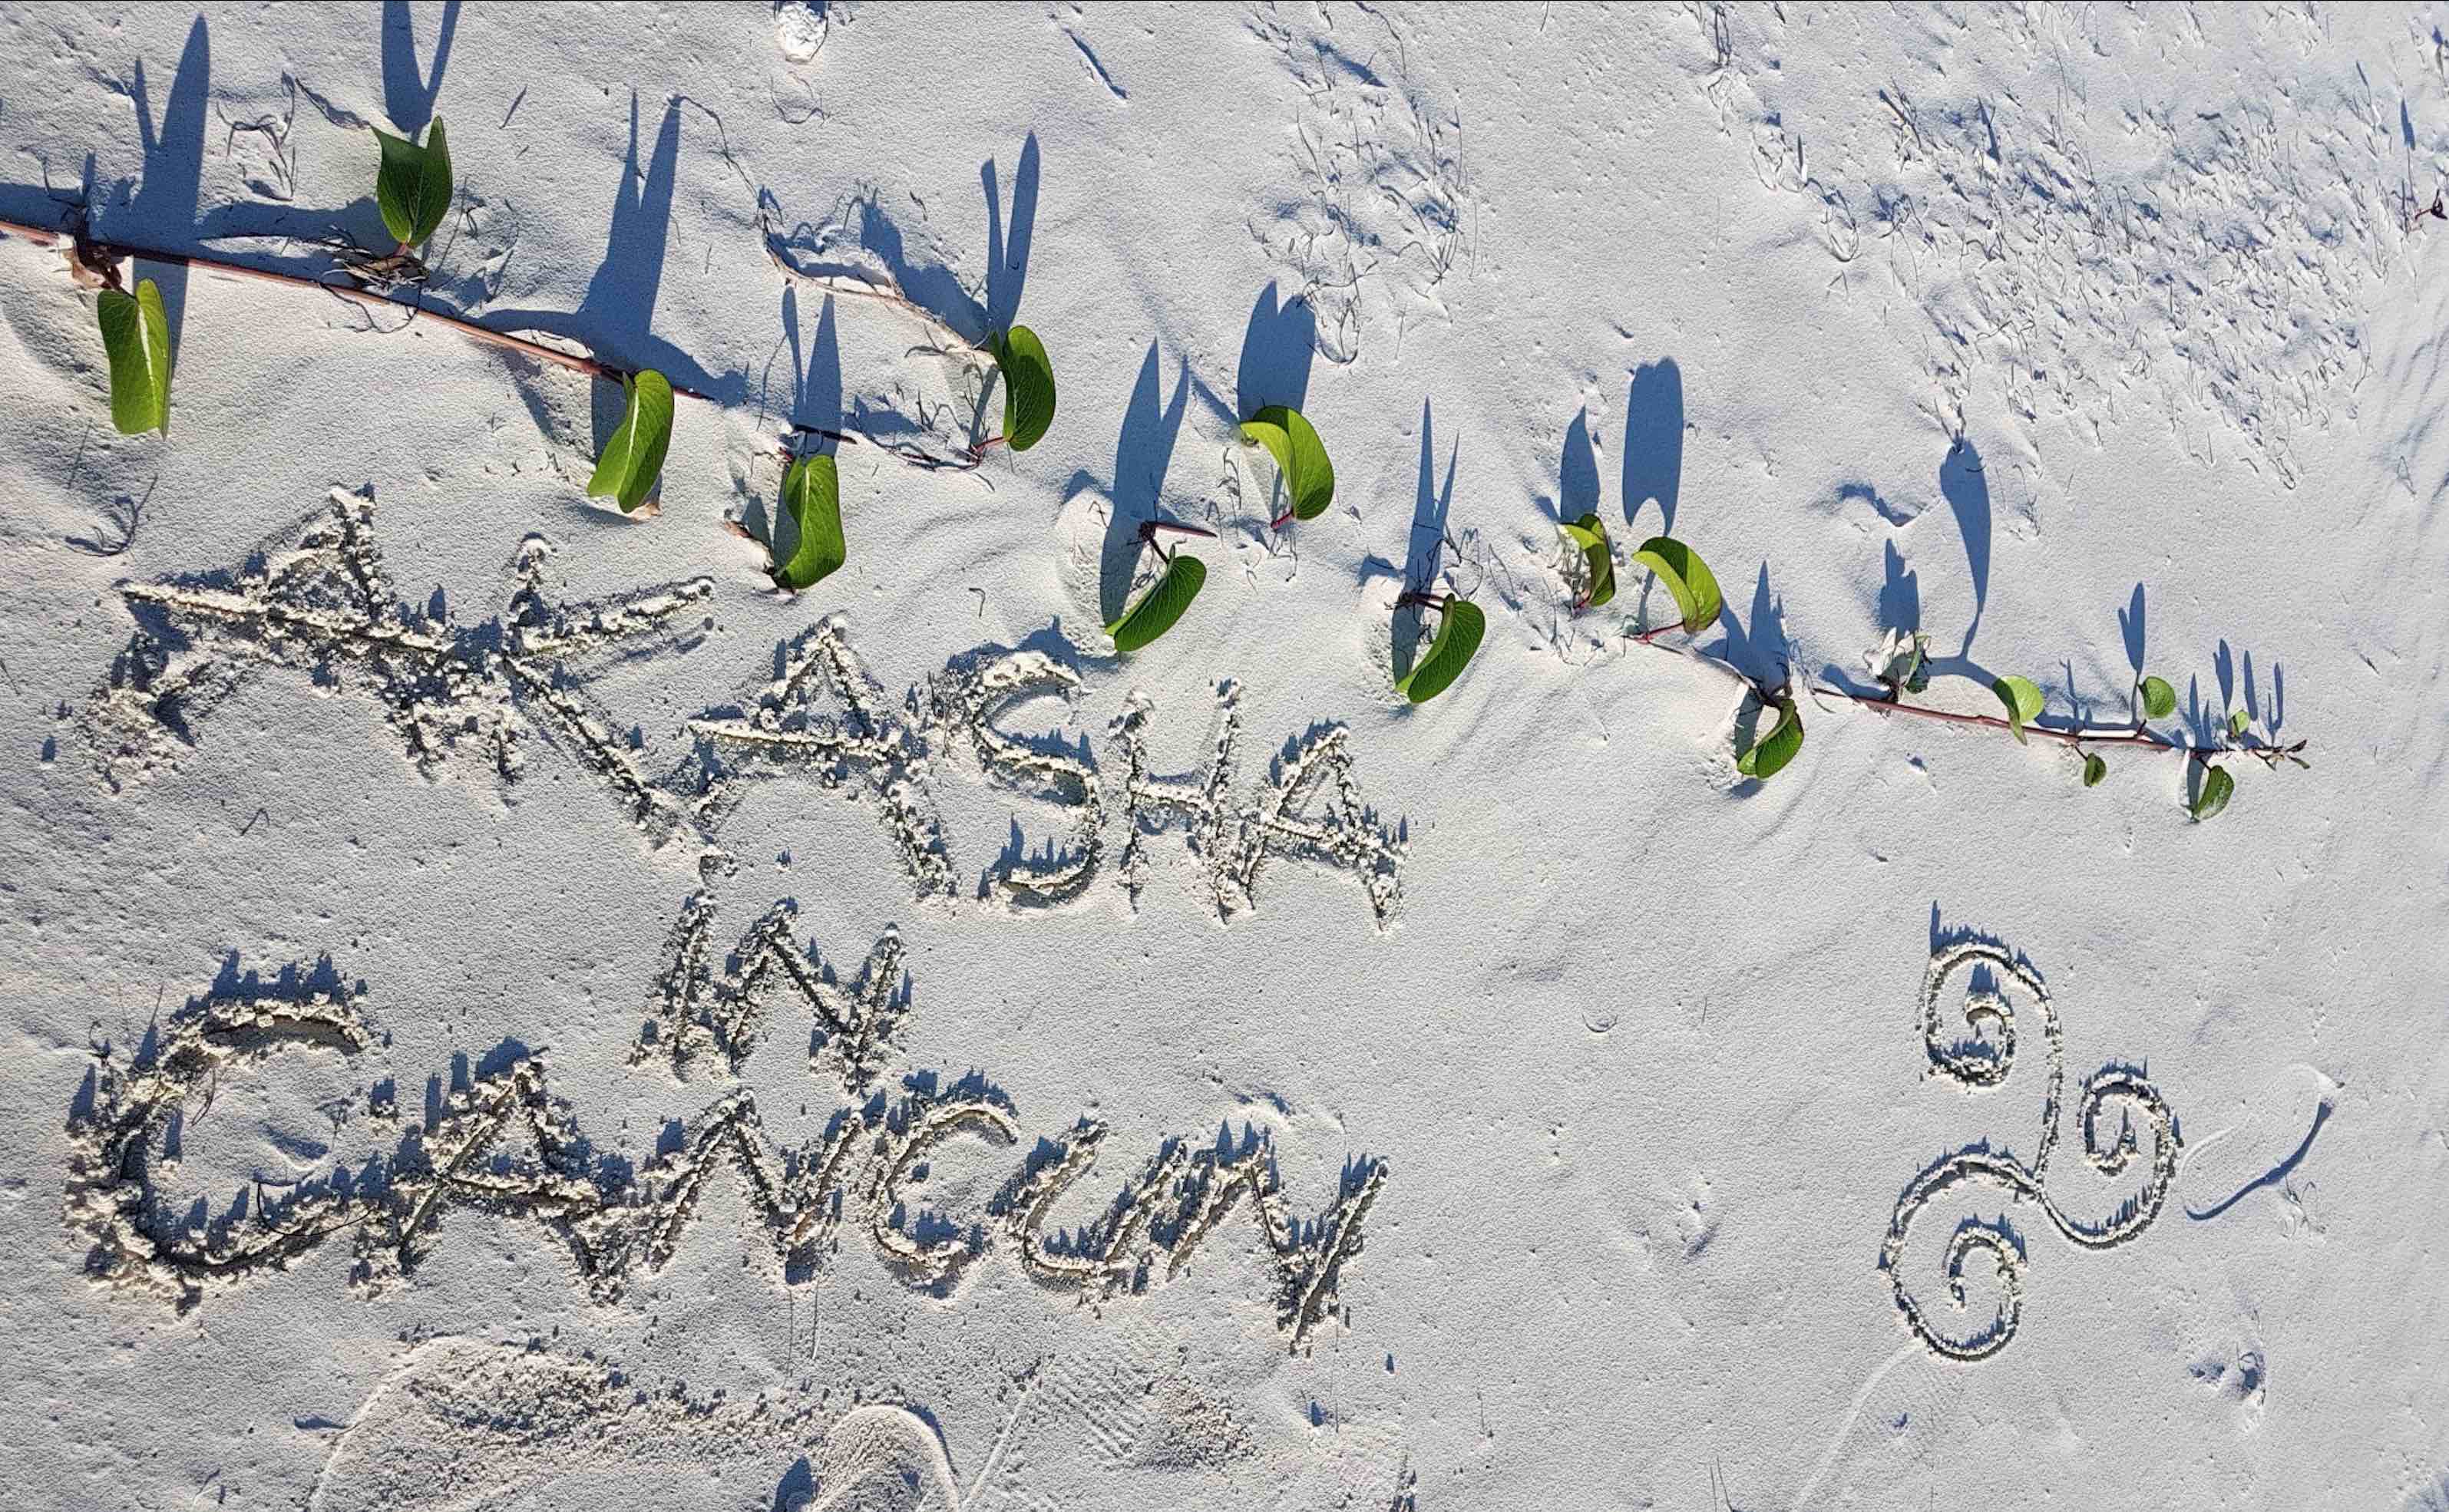 AKASHA
IN
CANCUN